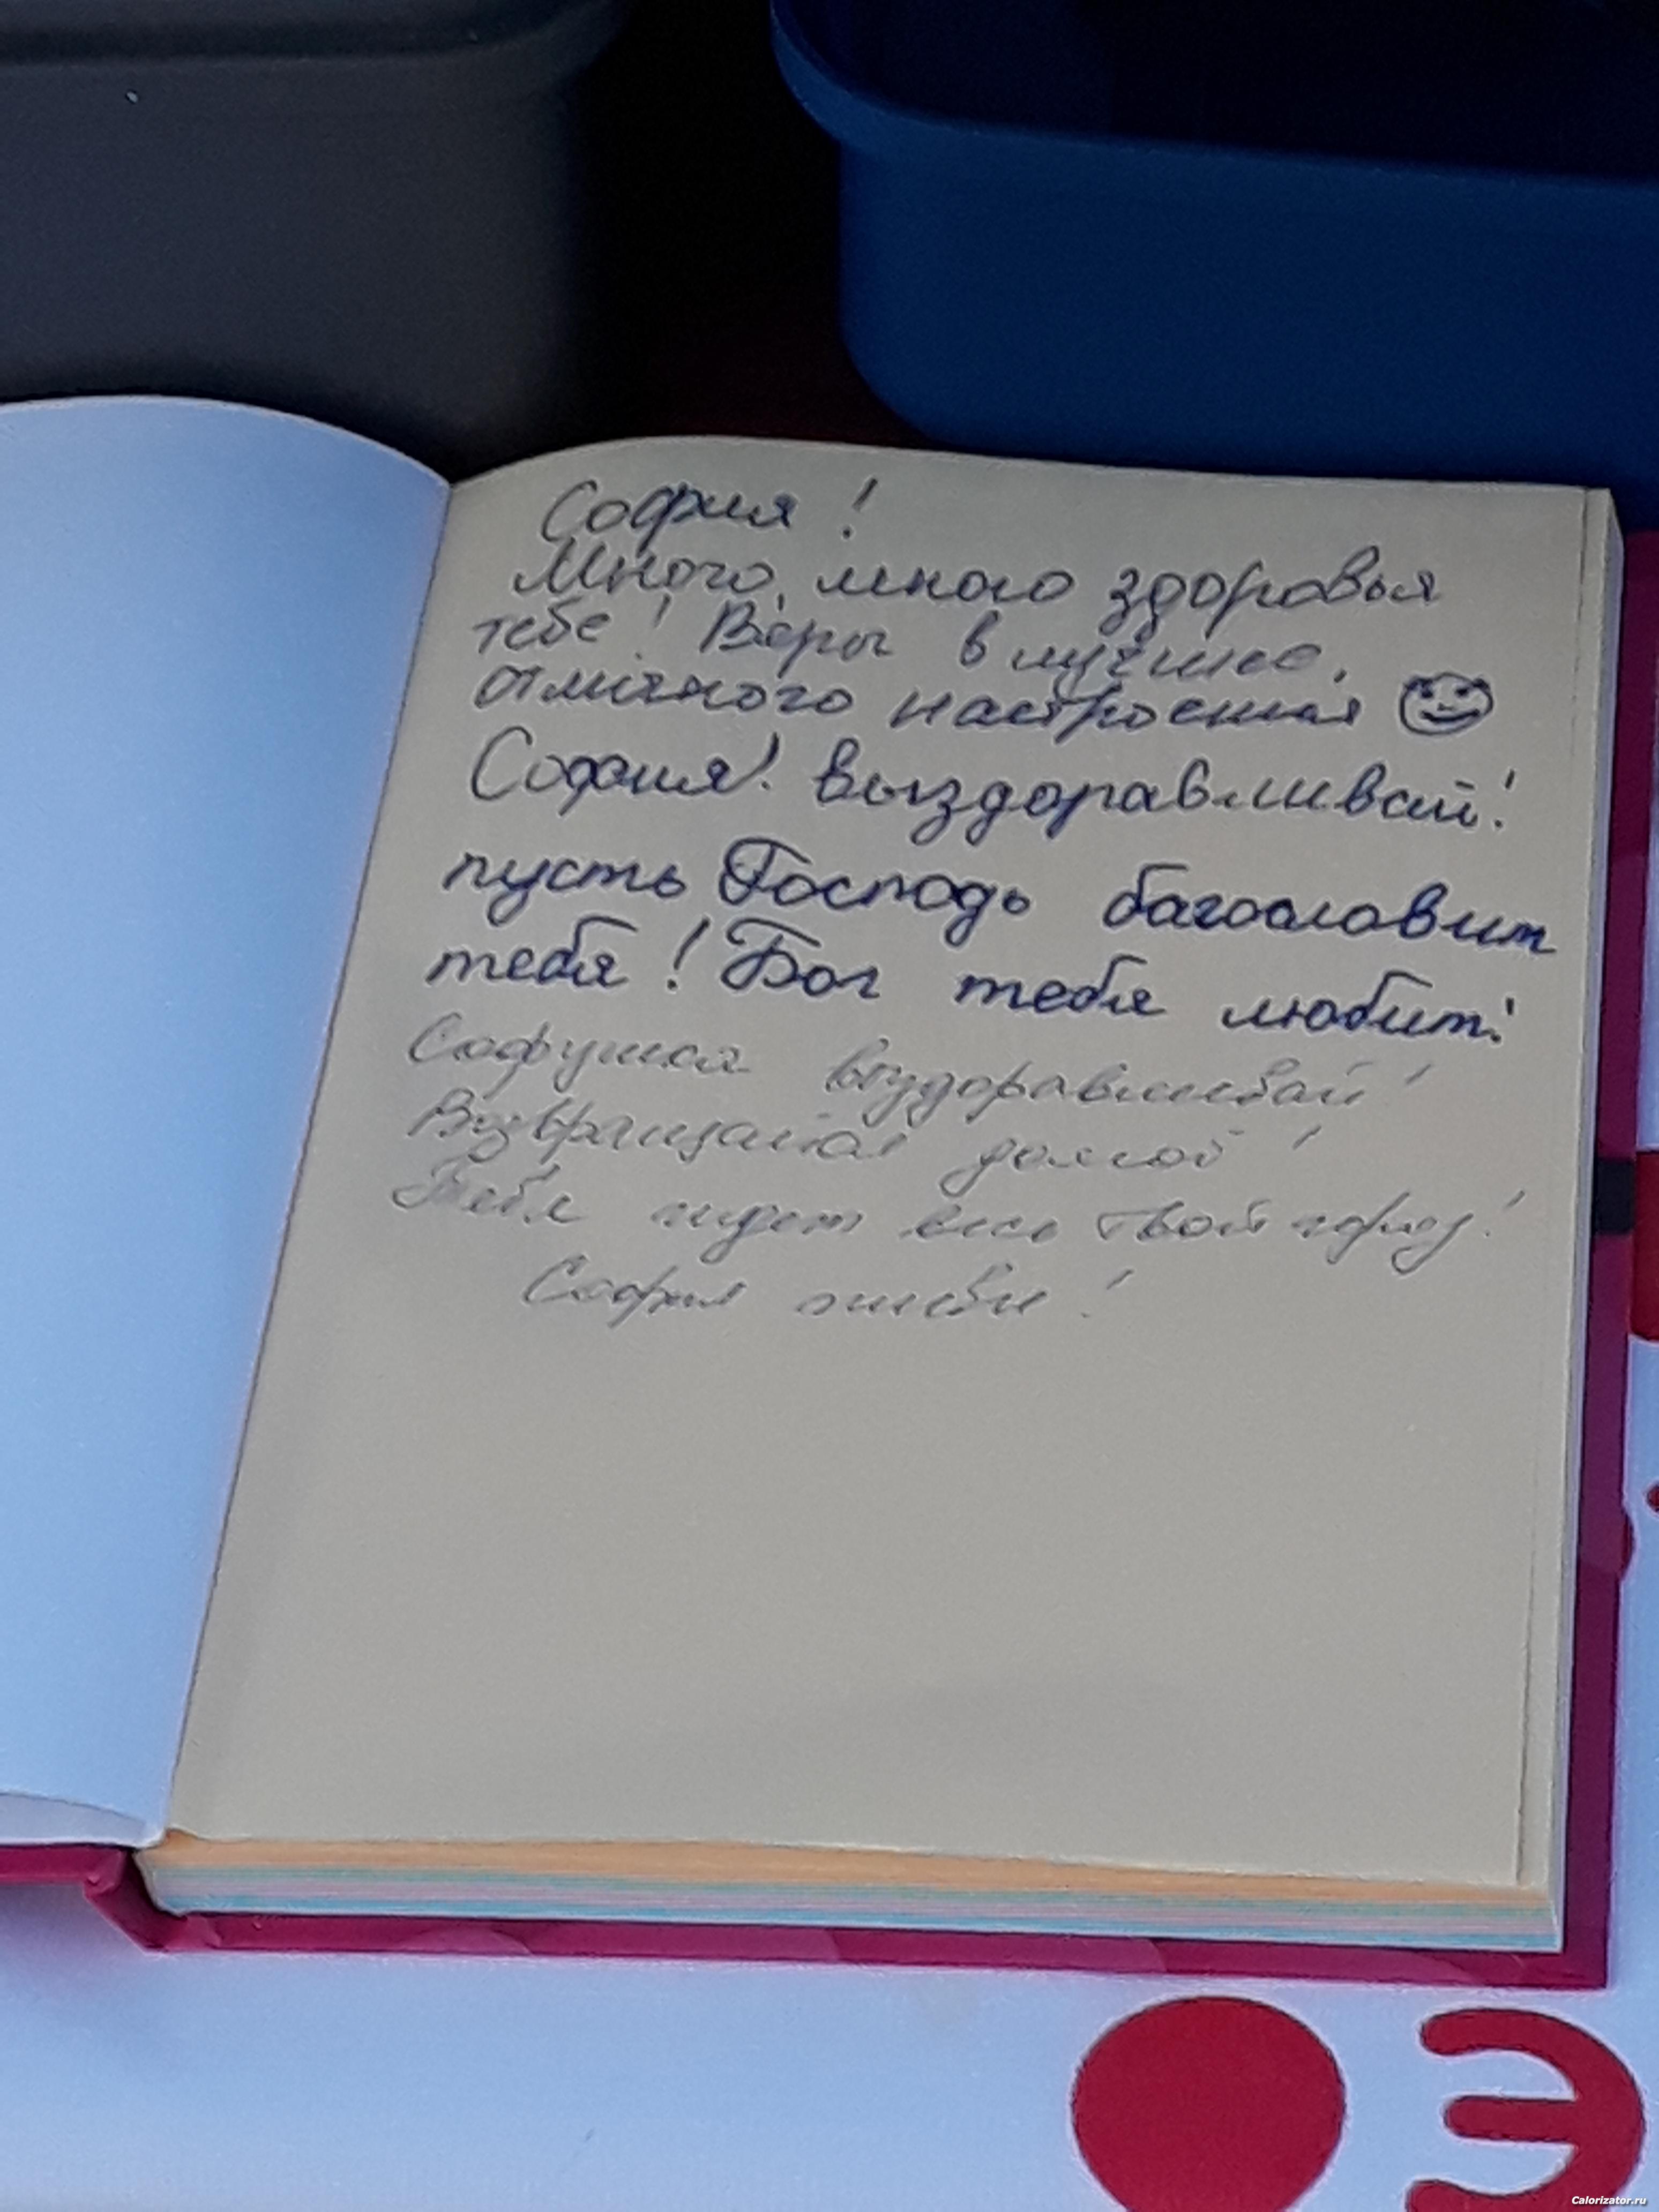 София!
Много, много здоровья
тебе! Веры в лучшее,
отличного настроения
София! выздоравливай!
пусть Господь багословит
тебя! Бог тебя любит!
Софушка выздоравливай!
Возвращайся домой!
Тебя ждет весь твой город!
София живи!
Э
Calorizator.ru